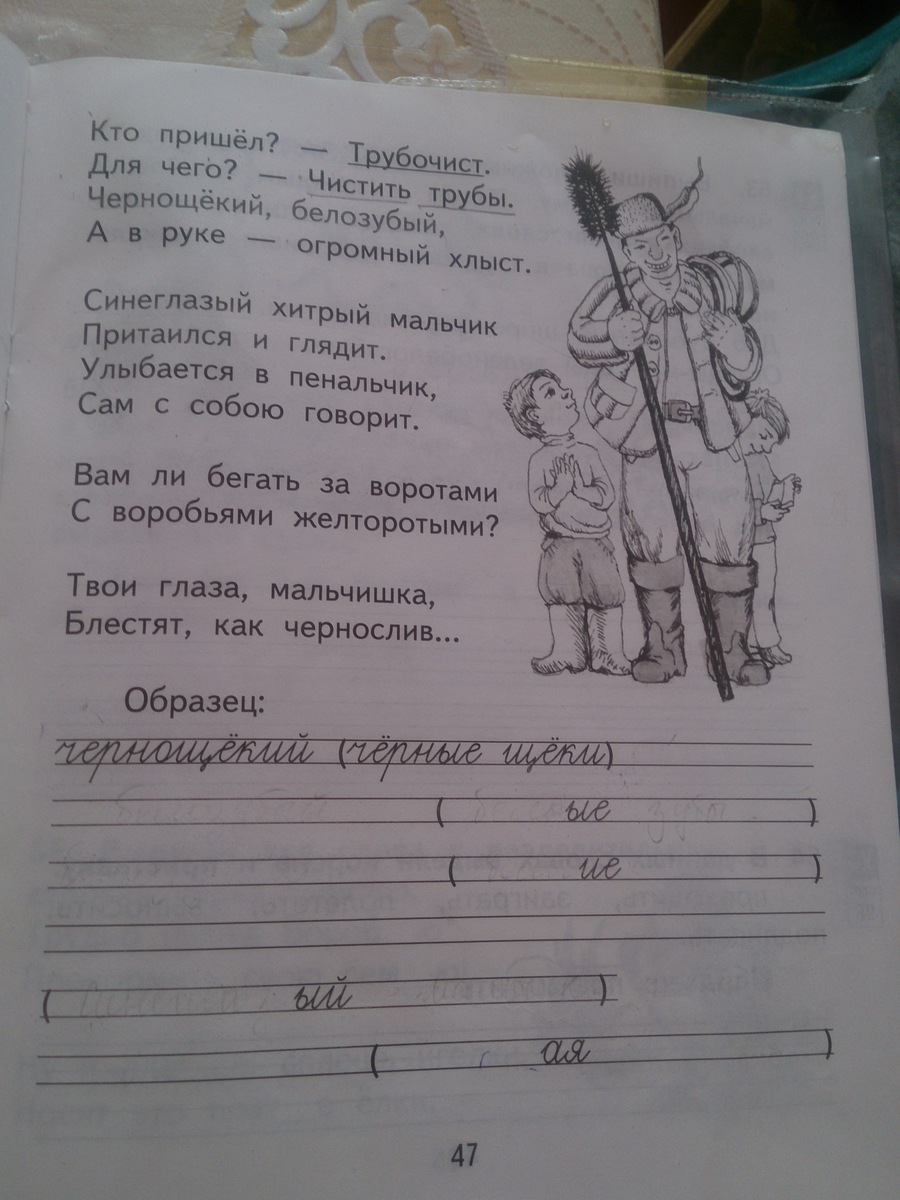 Кто пришёл? — Трубочист.
Для чего? — Чистить трубы.
Чернощёкий, белозубый,
А в руке — огромный хлыст.
Синеглазый хитрый мальчик
Притаился и глядит.
Улыбается в пенальчик,
Сам с собою говорит.
Вам ли бегать за воротами
С воробьями желторотыми?
Твои глаза, мальчишка,
Блестят, как чернослив...
Образец:
чернощёкий (чёрные щёки)
( ые зубы )
( ие )
( ый )
( ая )
47